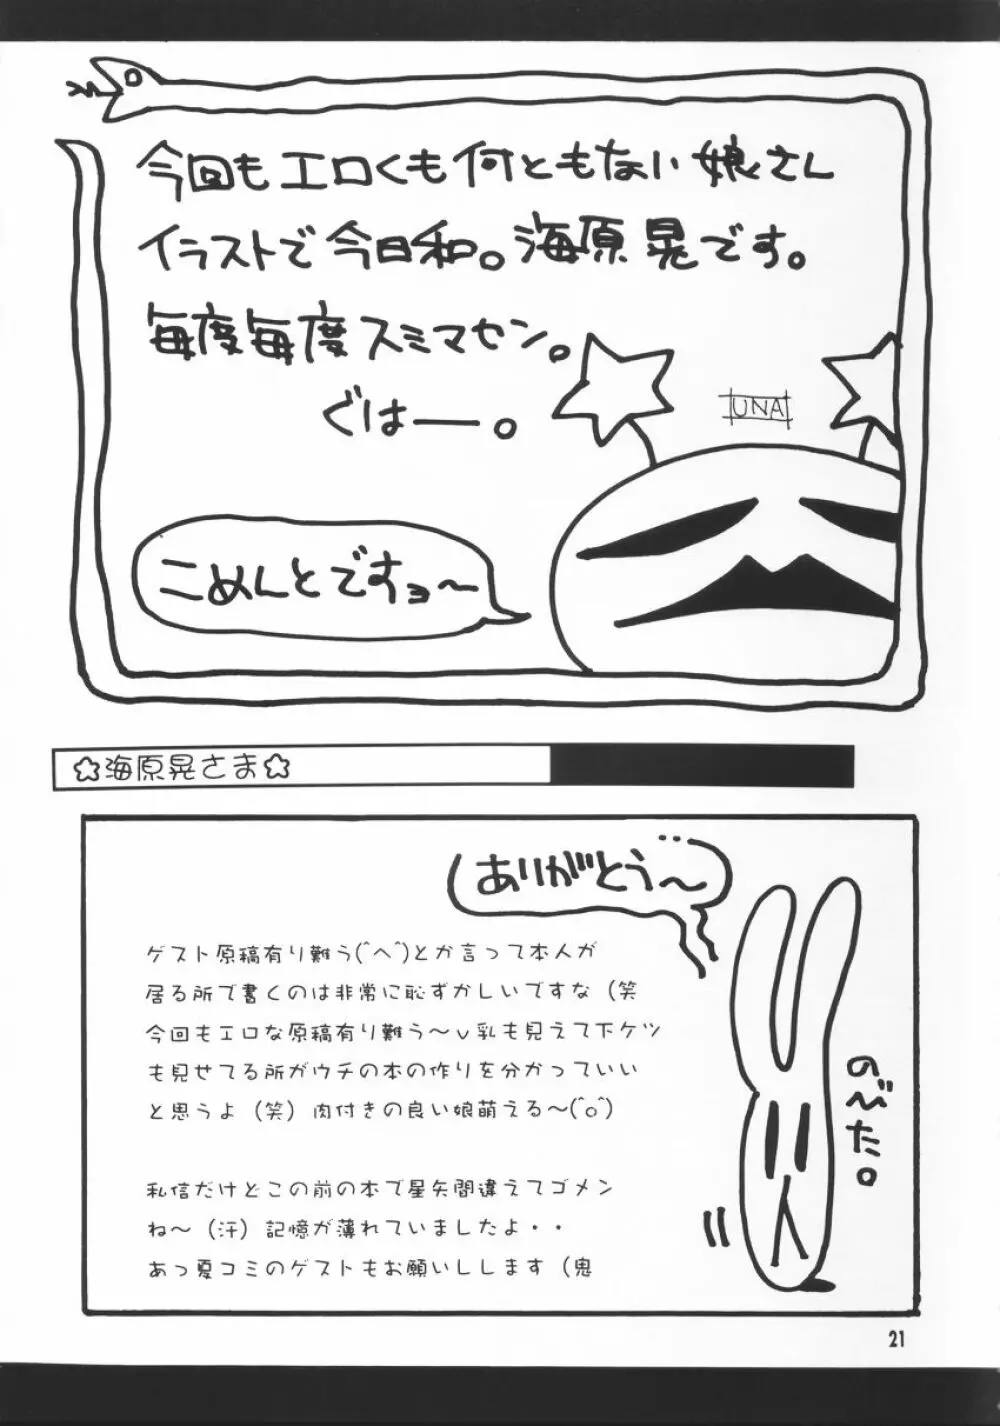 今回もエロくも何ともない娘さん
イラストで今日和。海原晃です。
毎度毎度スミマセン。
ぐはー。
UNA
こめんとですョ〜
☆海原晃さま☆
ありがとう〜
ゲスト原稿有り難う(^へ^)とか言って本人が
居る所で書くのは非常に恥ずかしいですな（笑
今回もエロな原稿有り難う〜v乳も見えて下ケツ
も見せてる所がウチの本の作りを分かっていい
と思うよ（笑）肉付きの良い娘萌える〜(^o^)
のびた。
私信だけどこの前の本で星矢間違えてゴメン
ね〜（汗）記憶が薄れていましたよ・・
あっ夏コミのゲストもお願いしします（鬼
21